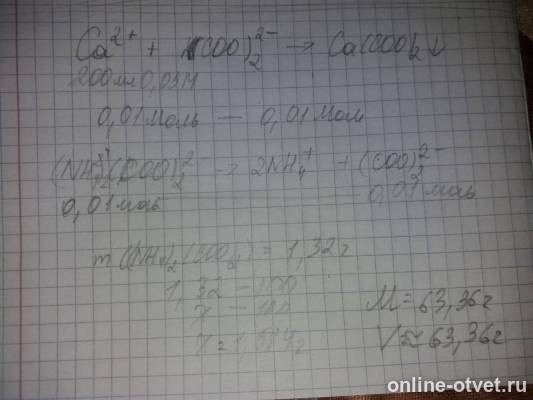 Ca²⁺ + (COO)₂²⁻ → Ca(COO)₂↓
200мл 0,05М
0,01моль — 0,01моль
(NH₄)₂(COO)₂ → 2NH₄⁺ + (COO)₂²⁻
0,01моль 0,01моль
m((NH₄)₂(COO)₂) = 1,32г
1,32 — 100
M = 63,36г
V ≈ 63,36г
online-otvet.ru